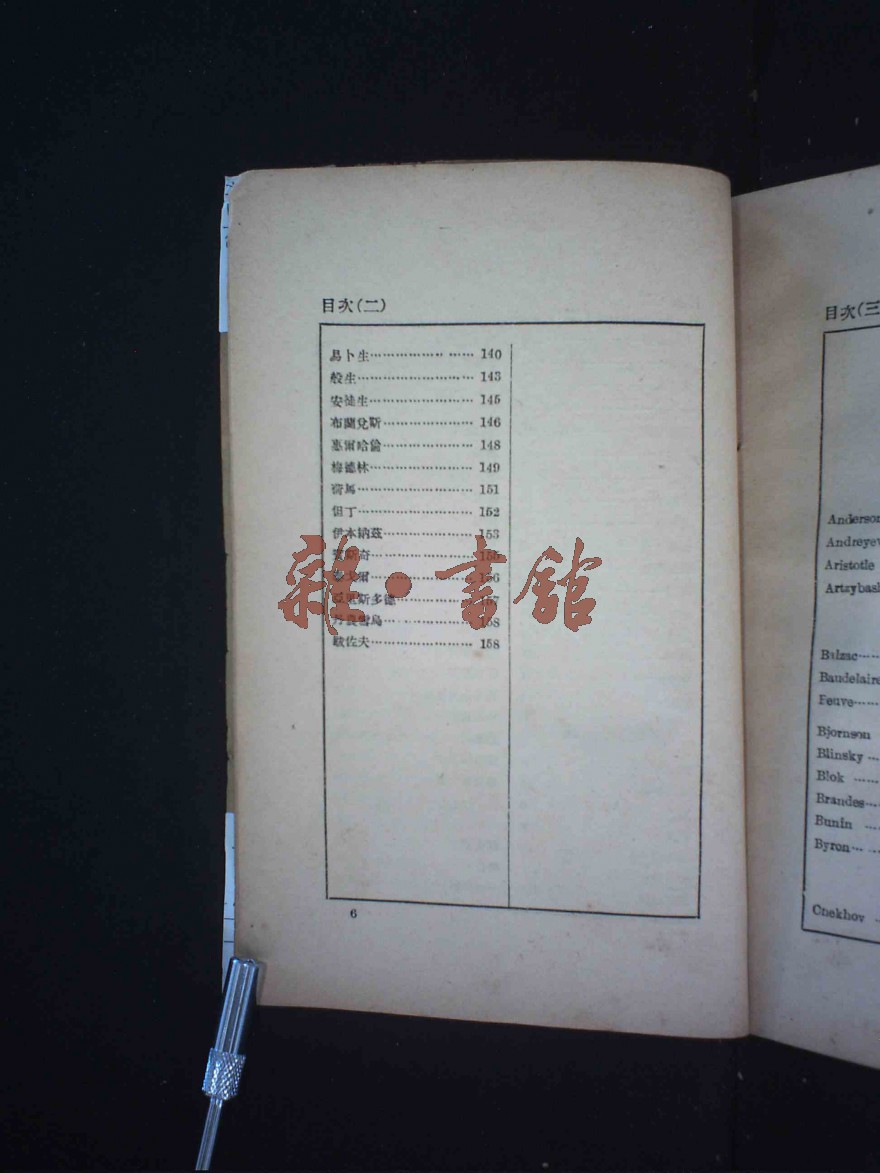 目次(二)
易卜生 140
般生 143
安徒生 145
布蘭兌斯 146
惠爾哈倫 148
梅德林 149
荷馬 151
但丁 152
伊本納茲 153
155
156
斯多德 157
158
佐夫 158
6
雜·書館
目次(三
Anderson
Andreyev
Aristotle
Artzybas
Balzac
Baudelaire
Feuve
Bjornson
Blinsky
Blok
Brandes
Bunin
Byron
Cnekhov